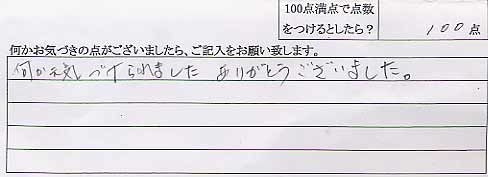 100点満点で点数
をつけるとしたら？ 100点
何かお気づきの点がございましたら、ご記入をお願い致します。
何か元気づけられました ありがとうございました。